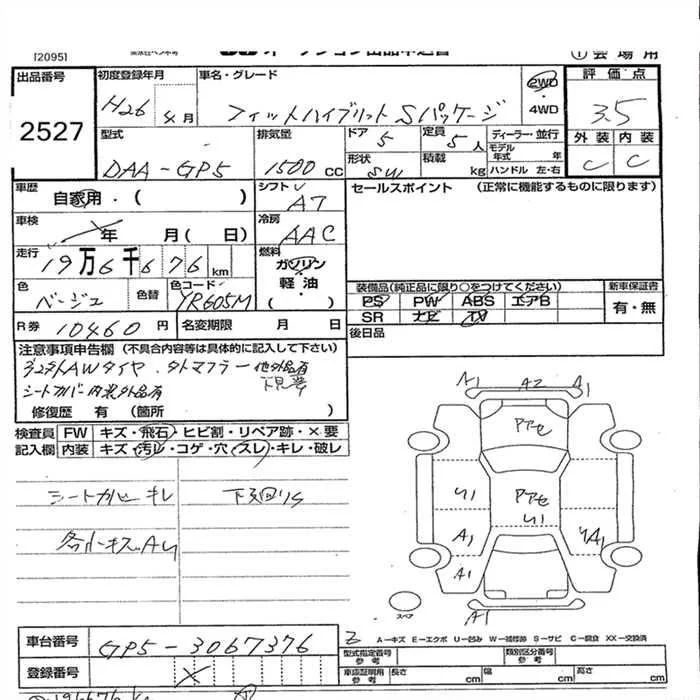 [2095]
① 会場用
出品番号 2527
初度登録年月 H26 年 4月
車名・グレード フィットハイブリット Sパッケージ
2WD ・ 4WD
評価点 3.5
外装 内装
C C
型式 DAA-GP5
排気量 1500 CC
ドア 5
定員 5人
形状 SW
積載 kg
ディーラー・並行
モデル年式 年
ハンドル 左・右
車歴 自家用・( )
シフト AT
セールスポイント (正常に機能するものに限ります)
車検 年 月( 日)
冷房 AAC
走行 19万6千676 km
燃料 ガソリン 軽油・( )
装備品(純正品に限り○をつけてください)
PS PW ABS エアB
SR ナビ TV
新車保証書 有・無
色 ベージュ
色替
色コード YR605M
R券 10460円
名変期限 月 日
後日品
注意事項申告欄 (不具合内容等は具体的に記入して下さい)
AWタイヤ、タトマフラー 他外品有
シートカバー 内装外品有
修復歴 有 (箇所 )
検査員記入欄
FW キズ・飛石・ヒビ割・リペア跡・×要
内装 キズ・汚レ・コゲ・穴・スレ・キレ・破レ
シートカバーキレ
各小キズ、AU
A1 A2 A1
Pアセ
U1 Pアセ
U1
A1
A1
A1
スペア
車台番号 GP5-3067376
登録番号
A-キズ E-エクボ U-凹み W-補修跡 S-サビ C-腐食 XX-交換済
型式指定番号 参考
類別区分番号 参考
車庫証明用 参考 長さ cm 幅 cm 高さ cm